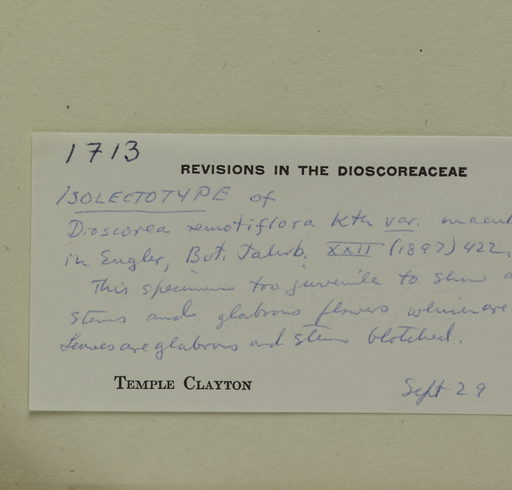 1713
REVISIONS IN THE DIOSCOREACEAE
ISOLECTOTYPE of
Dioscorea remotiflora Kth var. macul
in Engler, Bot. Jahrb. XXII (1897) 422,
This specimen too juvenile to show
stems and glabrous flowers which are
Leaves are glabrous and stems blotched.
TEMPLE CLAYTON
Sept 29